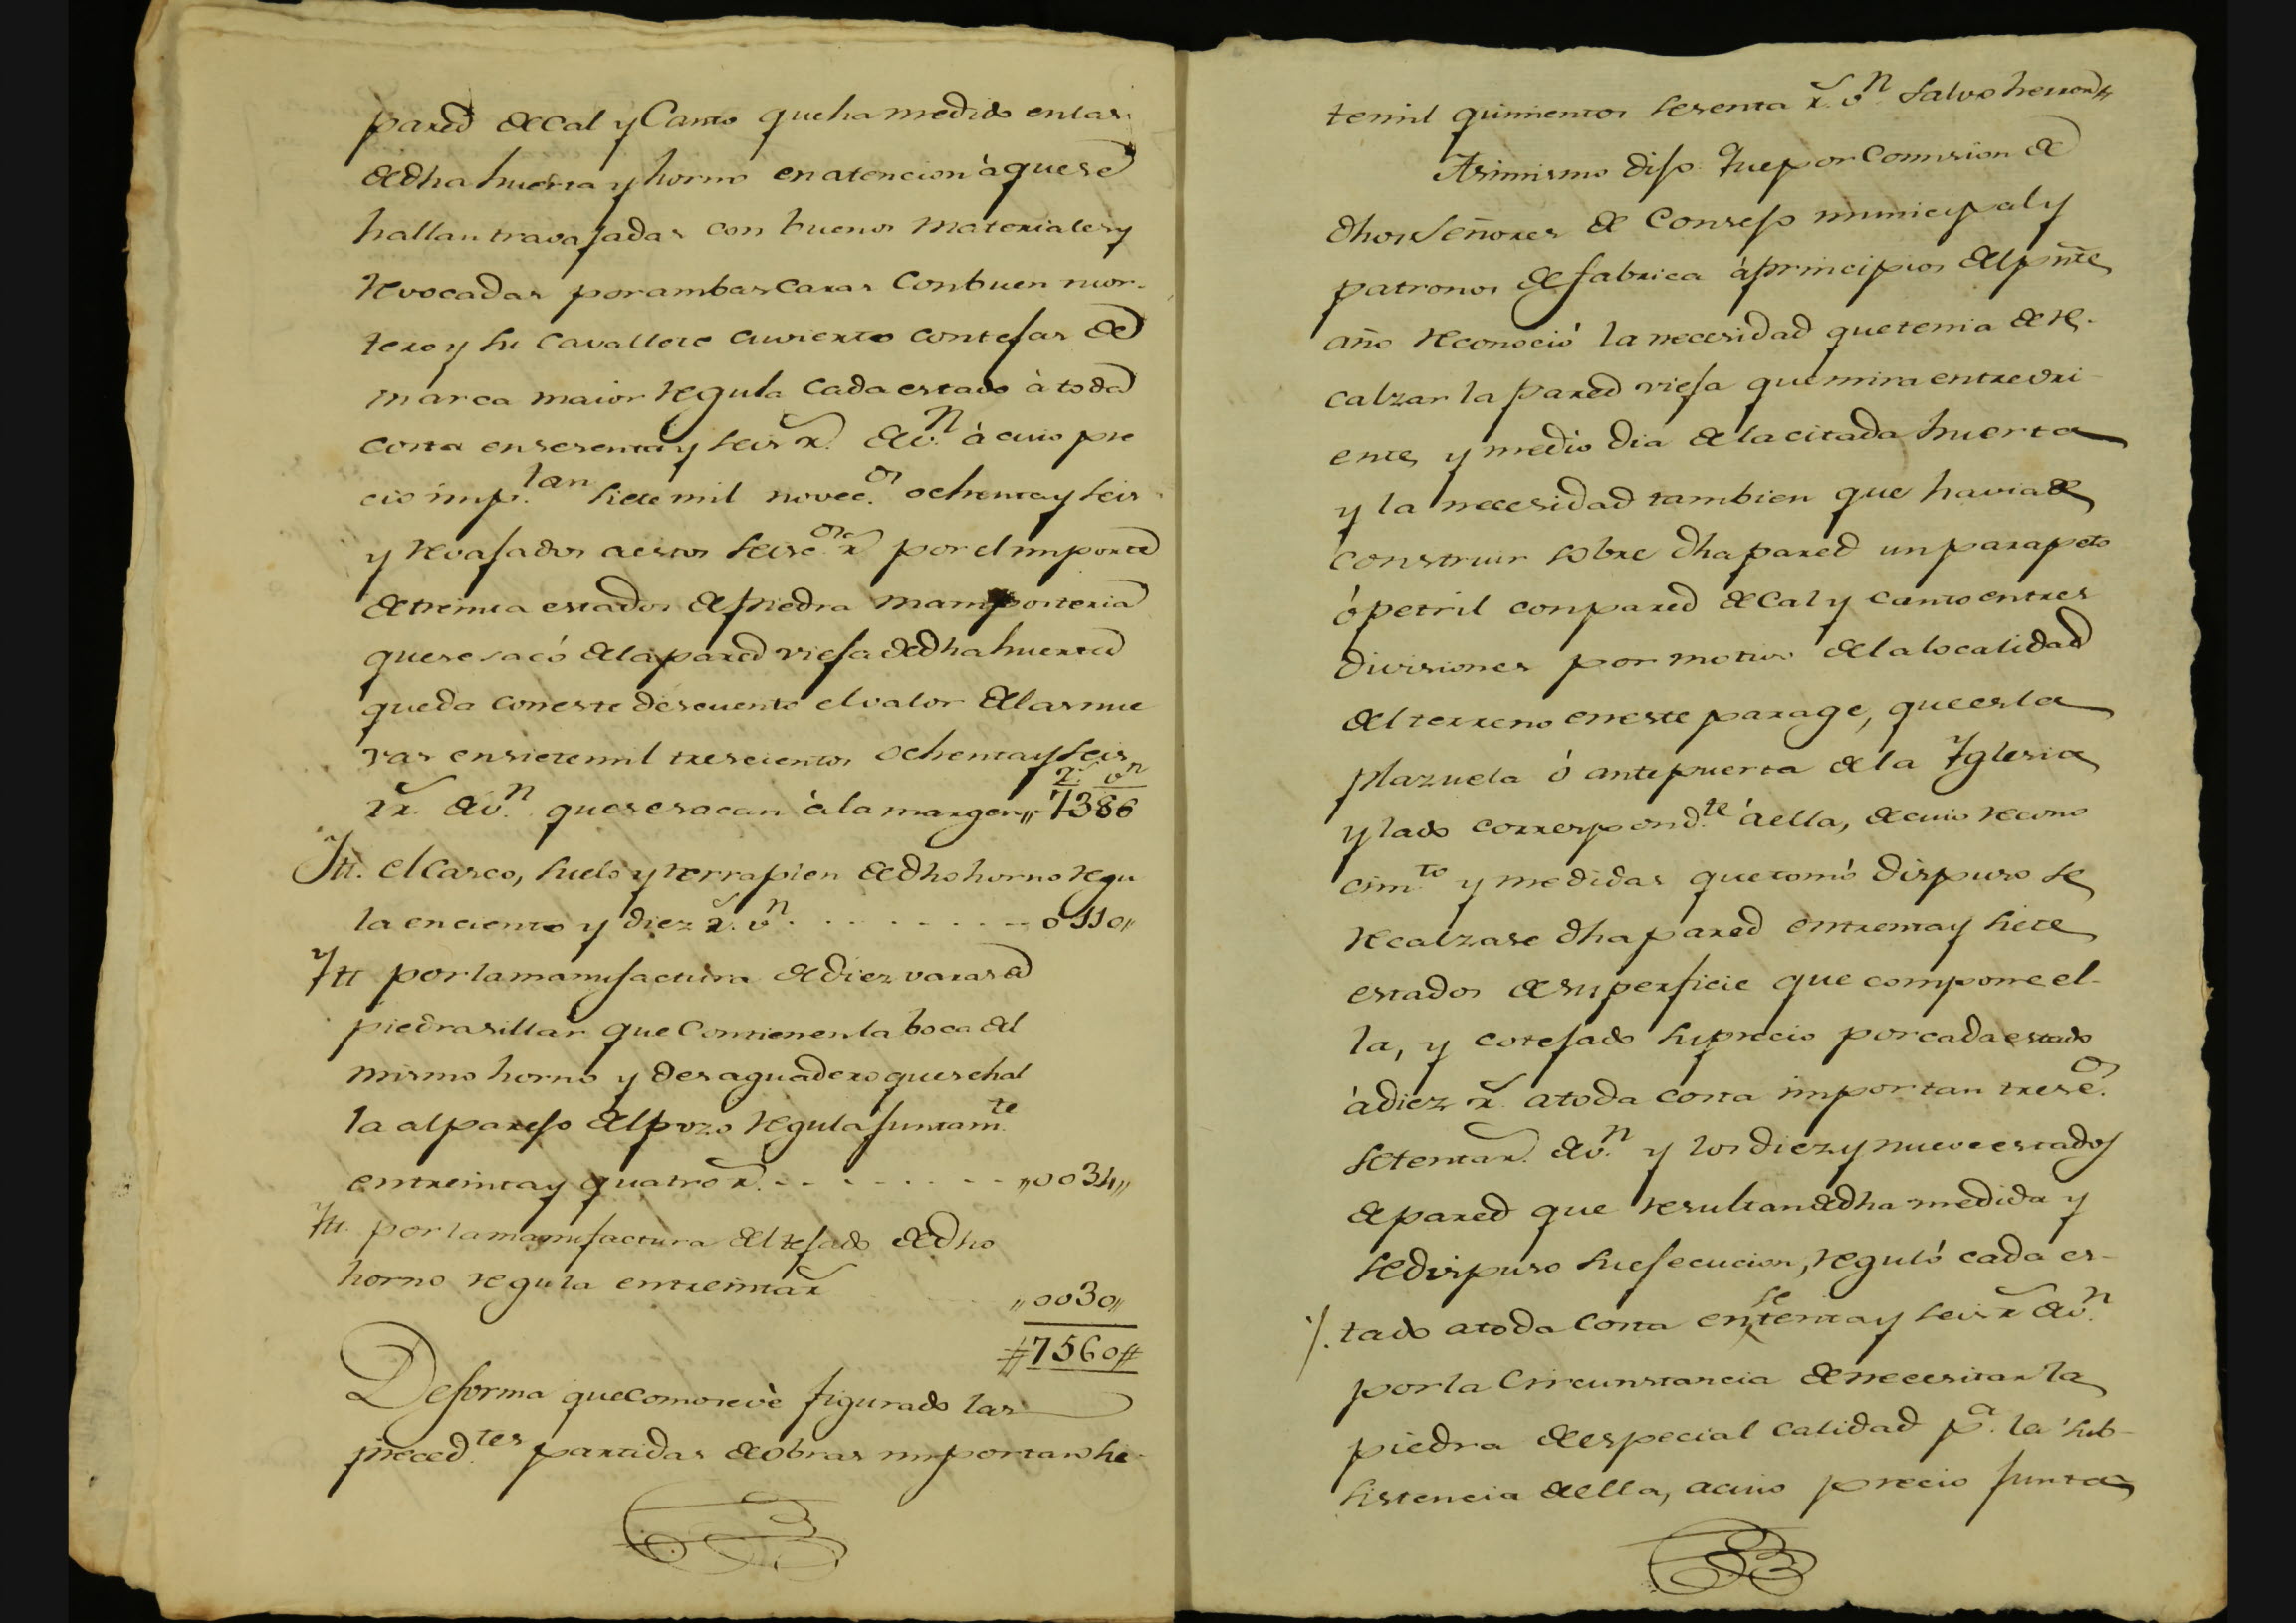 pared de Cal y Canto que ha medido en las
de dha huerta y horno en atencion à que se
hallan travajadas con buenos materiales y
revocadas por ambas Caras con buen mor-
tero y su cavallete cuvierto con tejas de
marca maior regula cada estado à toda
costa en sesenta y seis rs. de vn. à cuio pre
cio imp.tan siete mil novec.os ochenta y seis
y revajados a estos seisc.os rs por el importe
de treinta estados de piedra mamposteria
que se sacó de la pared vieja de dha huerta
queda con este descuento el valor de las nue
vas en siete mil trescientos ochenta y seis
rs. de vn. que se sacan à la margen,, rs. vn 7386
Ytt. el Casco, suelo y terrapien de dho horno regu
la en ciento y diez rs. vn. - - - - - - - - 0110,,
Ytt por la manufactura de diez varas de
piedra sillar que Contienen la boca del
mismo horno y desaguadero que se hal
la al parejo del pozo regula juntam.te
en treinta y quatro rs. - - - - - - - - ,,0034,,
Ytt. por la manufactura del tejado de dho
horno regula en treinta rs
,,0030,,
#7560#
De forma que como se vè figurado las
preced.tes partidas de obras importan sie-
te mil quinientos sesenta rs. vn. salvo herror#
Asimismo dijo: Que por Comision de
dhos Señores de Consejo municipal y
patronos de fabrica à principios del pñte
año reconoció la necesidad que tenia de re-
calzar la pared vieja que mira entre ori-
ente y medio dia de la citada huerta
y la necesidad tambien que havia de
construir sobre dha pared un parapeto
ó petril con pared de Cal y canto en tres
divisiones por motivo de la localidad
del terreno en este parage, que es la
Plazuela ó antepuerta de la Yglesia
y lado correspond.te à ella, de cuio recono
cim.to y medidas que tomó dispuso se
recalzase dha pared en treinta y siete
estados de superficie que compone el-
la, y cotejado su precio por cada estado
à diez rs. a toda costa importan tresc.os
setenta rs. de vn. y los diez y nueve estados
de pared que resultan de dha medida y
se dispuso su ejecucion, reguló cada es-
/. tado a toda costa en setenta y seis rs de vn.
por la Circunstancia de necesitar la
piedra de especial calidad p.a la sub-
sistencia de ella, a cuio precio junta